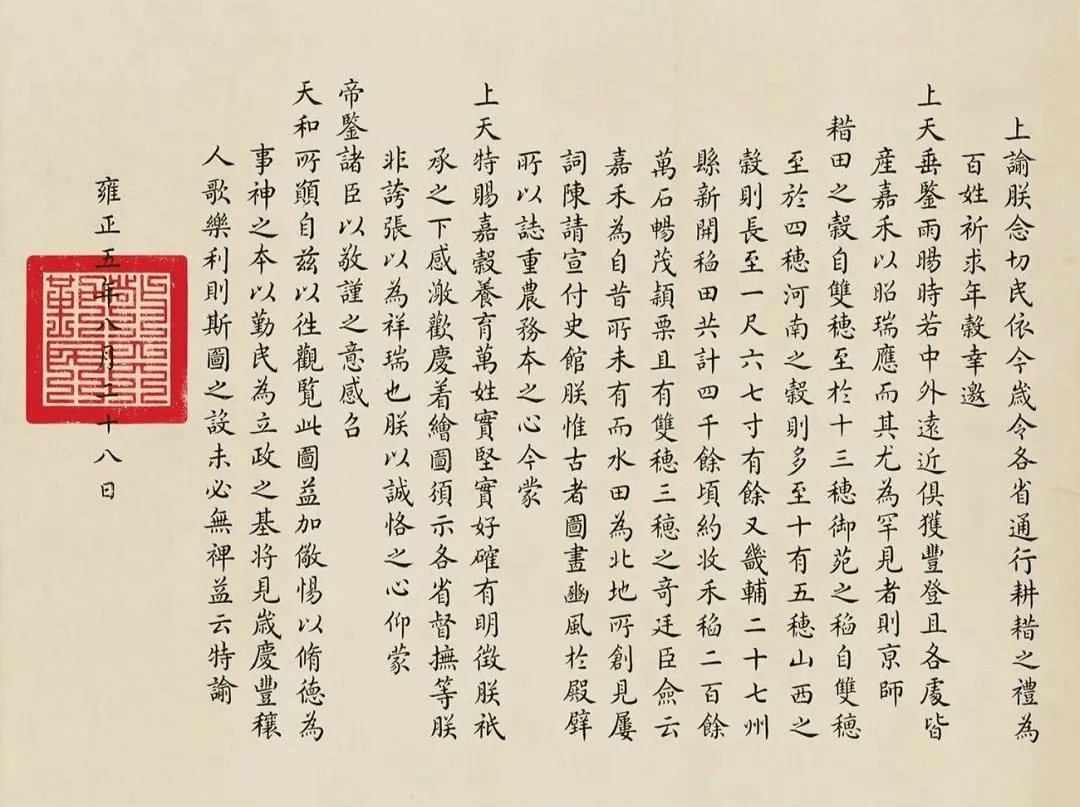 上諭朕念切民依今歲令各省通行耕耤之禮為
百姓祈求年穀幸邀
上天垂鑒雨暘時若中外遠近俱獲豐登且各處皆
產嘉禾以昭瑞應而其尤為罕見者則京師
耤田之穀自雙穗至於十三穗御苑之稻自雙穗
至於四穗河南之穀則多至十有五穗山西之
穀則長至一尺六七寸有餘又畿輔二十七州
縣新開稻田共計四千餘頃約收禾稻二百餘
萬石暢茂穎栗且有雙穗三穗之奇廷臣僉云
嘉禾為自昔所未有而水田為北地所創見屢
詞陳請宣付史館朕惟古者圖畫豳風於殿壁
所以誌重農務本之心今蒙
上天特賜嘉穀養育萬姓實堅實好確有明徵朕祇
承之下感激歡慶着繪圖頒示各省督撫等朕
非誇張以為祥瑞也朕以誠恪之心仰蒙
帝鑒諸臣以敬謹之意感召
天和所願自兹以往觀覽此圖益加儆惕以脩德為
事神之本以勤民為立政之基將見歲慶豐穰
人歌樂利則斯圖之設未必無裨益云特諭
雍正五年八月二十八日